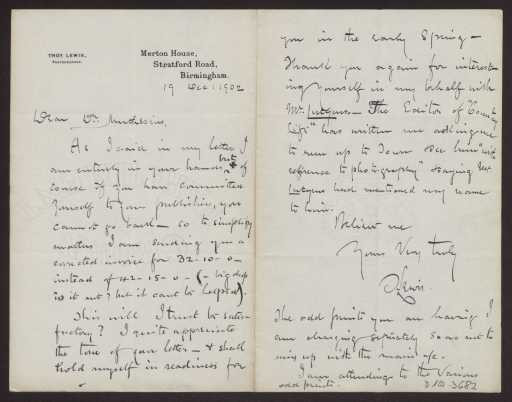 TROY LEWIS,
PHOTOGRAPHER.
Morton House,
Stratford Road,
Birmingham.
19 Dec: 1902
Dear Dr. Muthesius,
As I said in my letter I
am entirely in your hands, but of
course if you have committed
yourself to your publisher, you
cannot go back — so to simplify
matters I am sending you a
corrected invoice for 32-10-0-
instead of 42-15-0- (- big drop
is it not? but it can't be helped).
This will I trust be satis-
factory? I quite appreciate
the tone of your letter — & shall
hold myself in readiness for
you in the early Spring —
Thank you again for interest-
ing yourself in my behalf with
Mr. Lutyens — The Editor of "Country
Life" has written me asking me
to run up to Town & see him "with
reference to photography" saying Mr
Lutyens had mentioned my name
to him.
Believe me
Yours Very truly
Lewis.
The odd prints you are having I
am charging separately so as not to
mix up with the main
I am attending to the various
odd prints.
3682